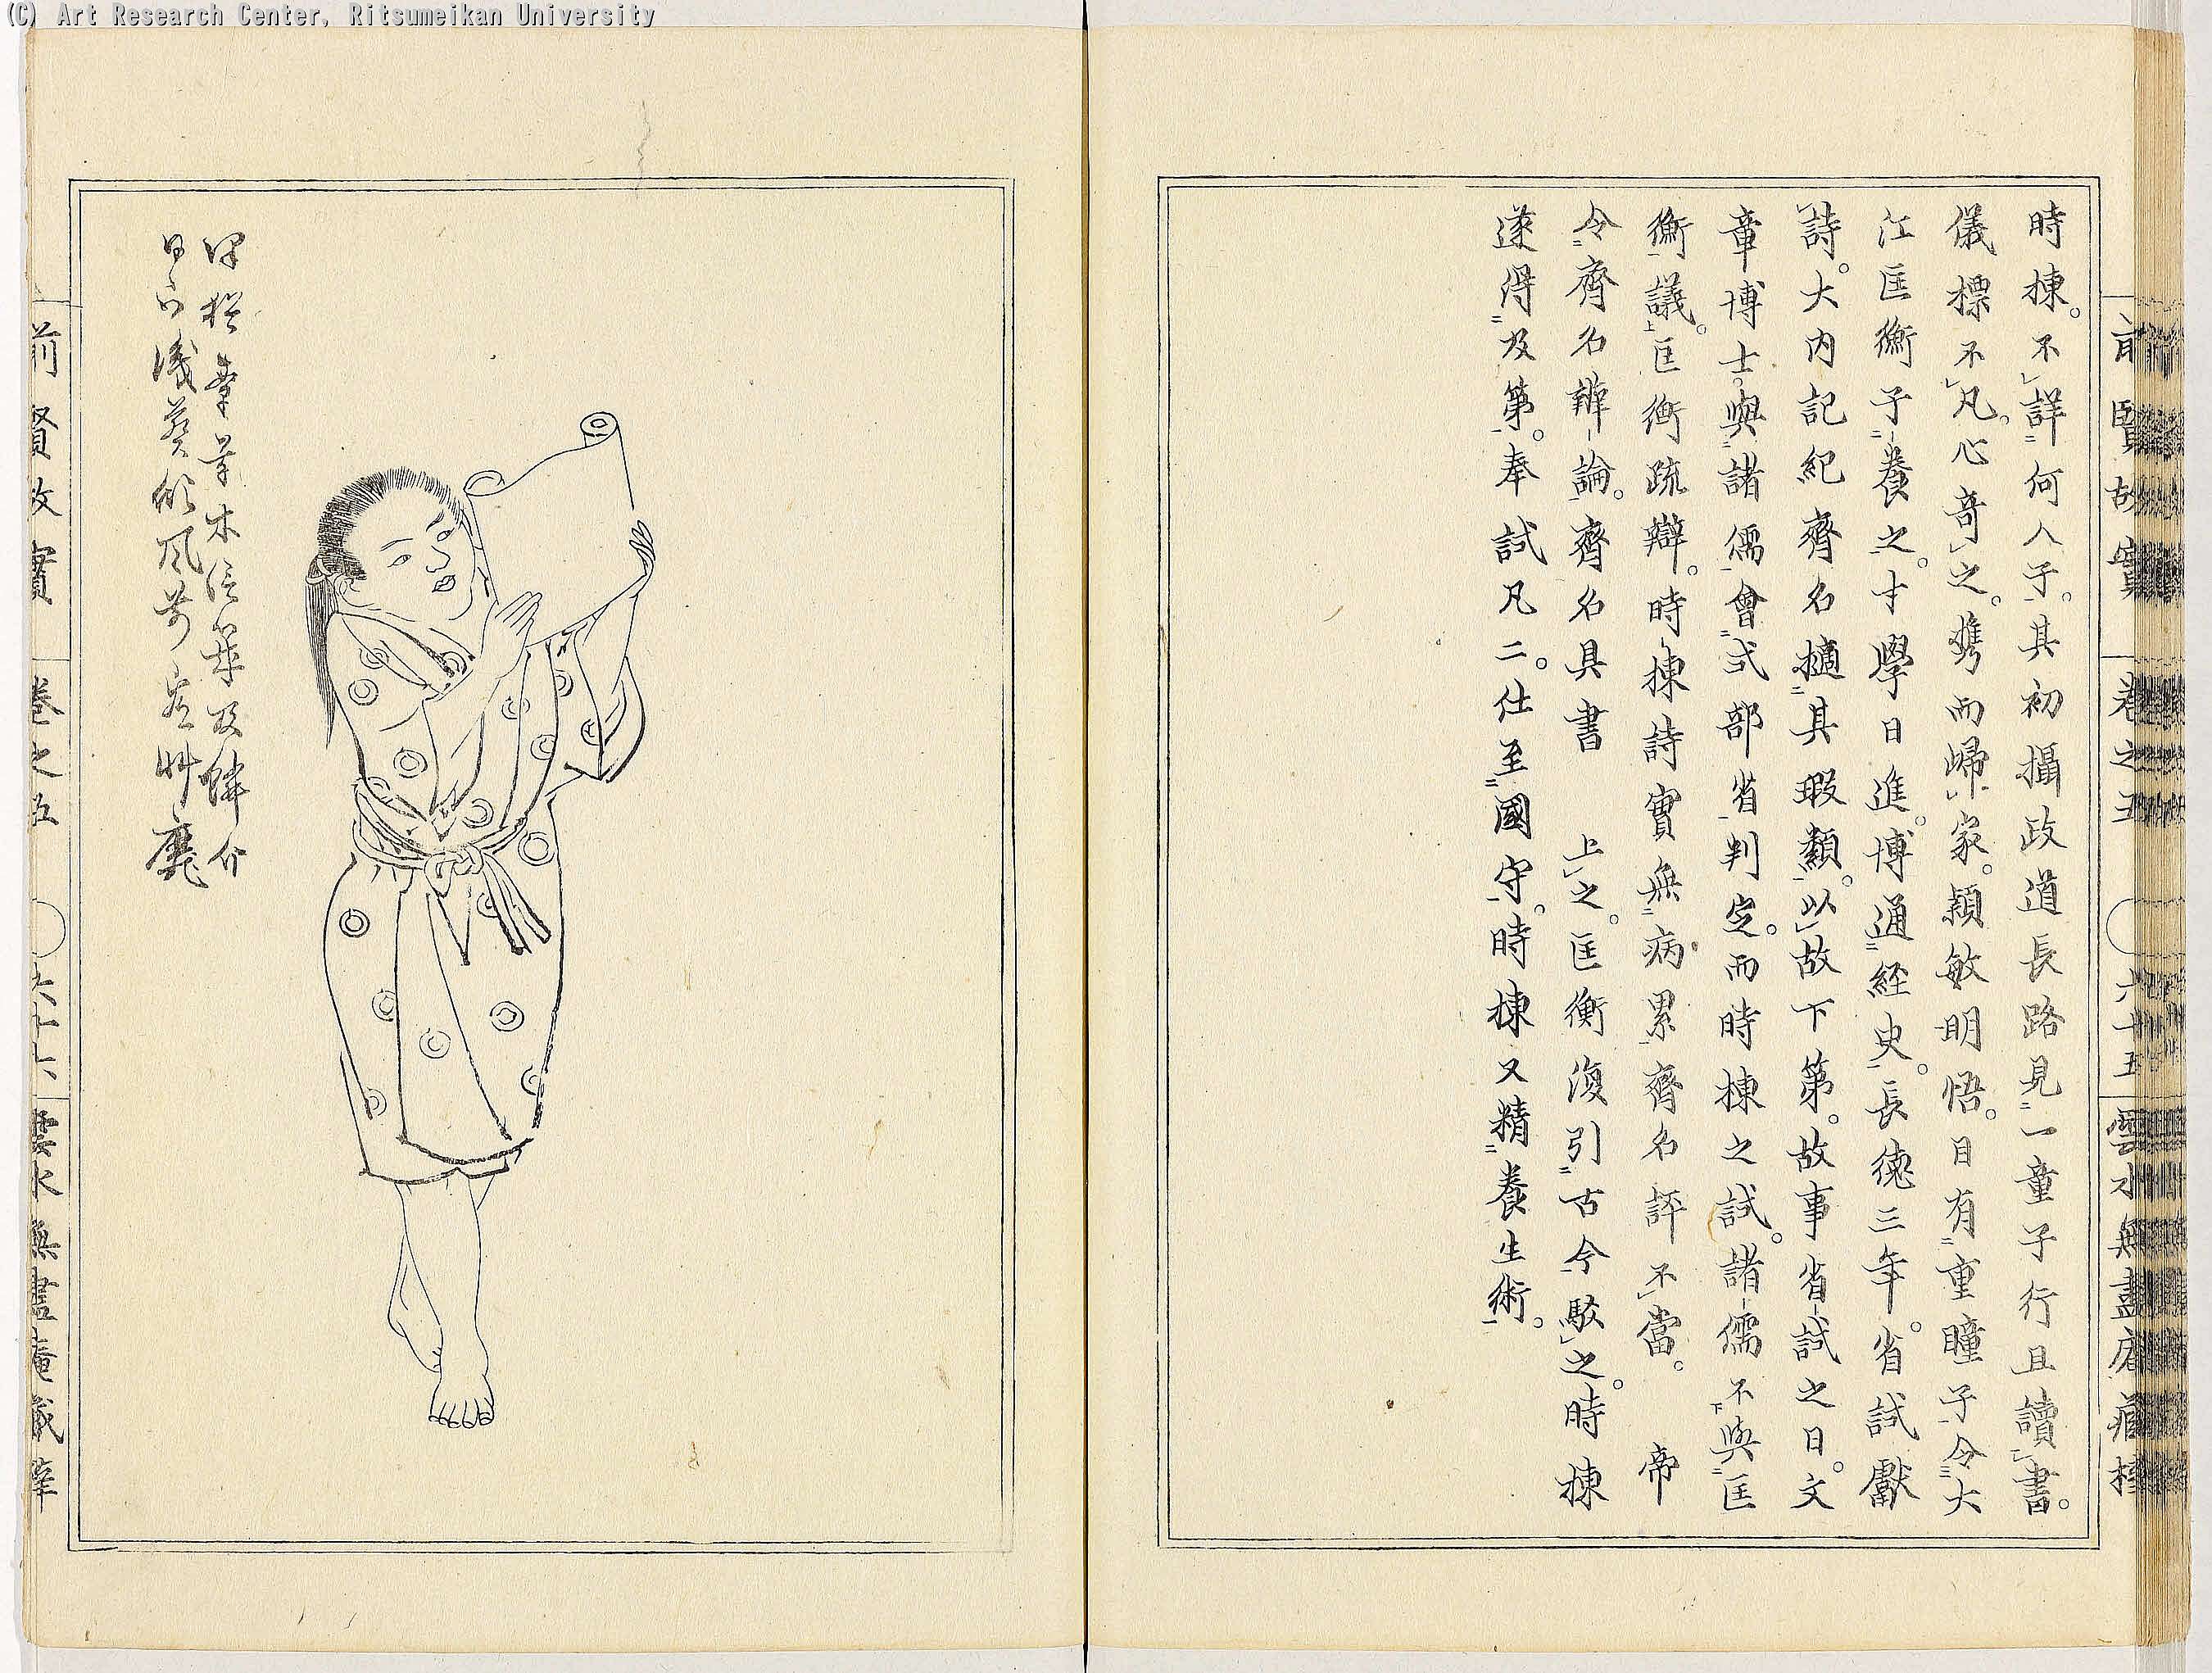 (C) Art Research Center, Ritsumeikan University
前賢故實 卷之五 六十五 雲水無盡庵藏梓
時棟。不詳何人子。其初攝政道長路見一童子行且讀書。
儀標不凡。心奇之。携而歸家。穎敏明悟。目有重瞳子令大
江匡衡子養之。才學日進。博通經史。長德三年。省試獻
詩。大内記紀齊名擿其瑕纇。以故下第。故事省試之日。文
章博士與諸儒會式部省判定。而時棟之試。諸儒不與匡
衡議。匡衡疏辯。時棟詩實無病累齊名評不當。 帝
令齊名辨論。齊名具書 上之。匡衡復引古今駁之。時棟
遂得及第。奉試凡二。仕至國守。時棟又精養生術。
前賢故實 卷之五 六十六 雲水無盡庵藏梓